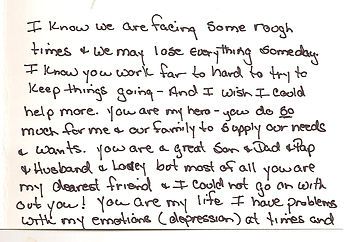 I know we are facing some rough
times & we may lose everything someday.
I know you work far to hard to try to
keep things going - And I wish I could
help more. you are my hero - you do so
much for me & our family to supply our needs
& wants. you are a great Son & Dad & Pap
& Husband & but most of all you are
my dearest friend & I could not go on with
out you! you are my life I have problems
with my emotions (depression) at times and